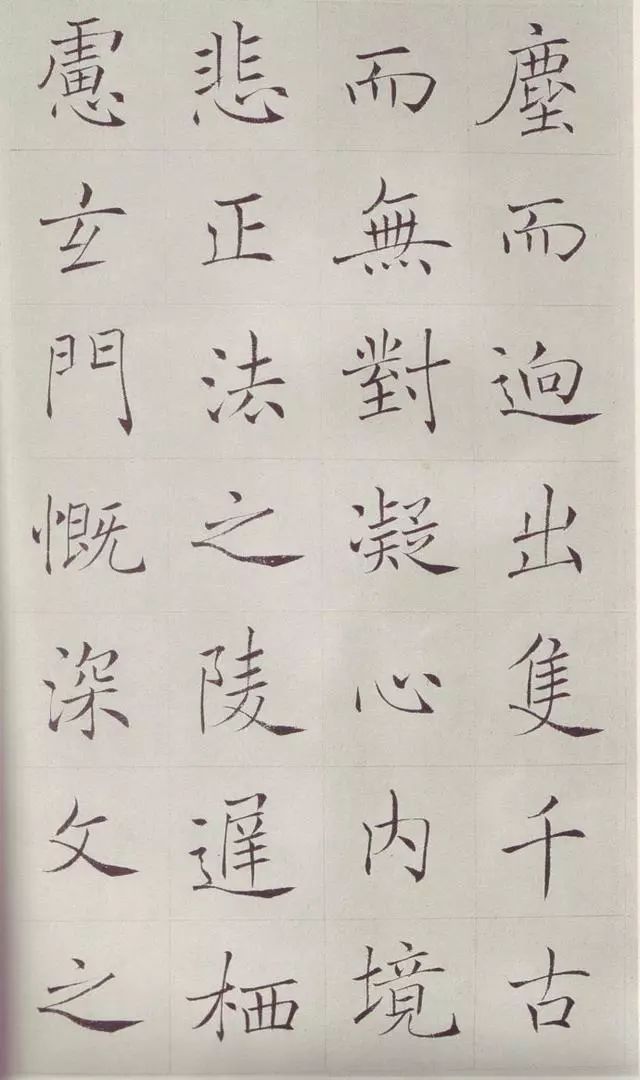 塵而迥出隻千古
而無對凝心内境
悲正法之陵遲栖
慮玄門慨深文之